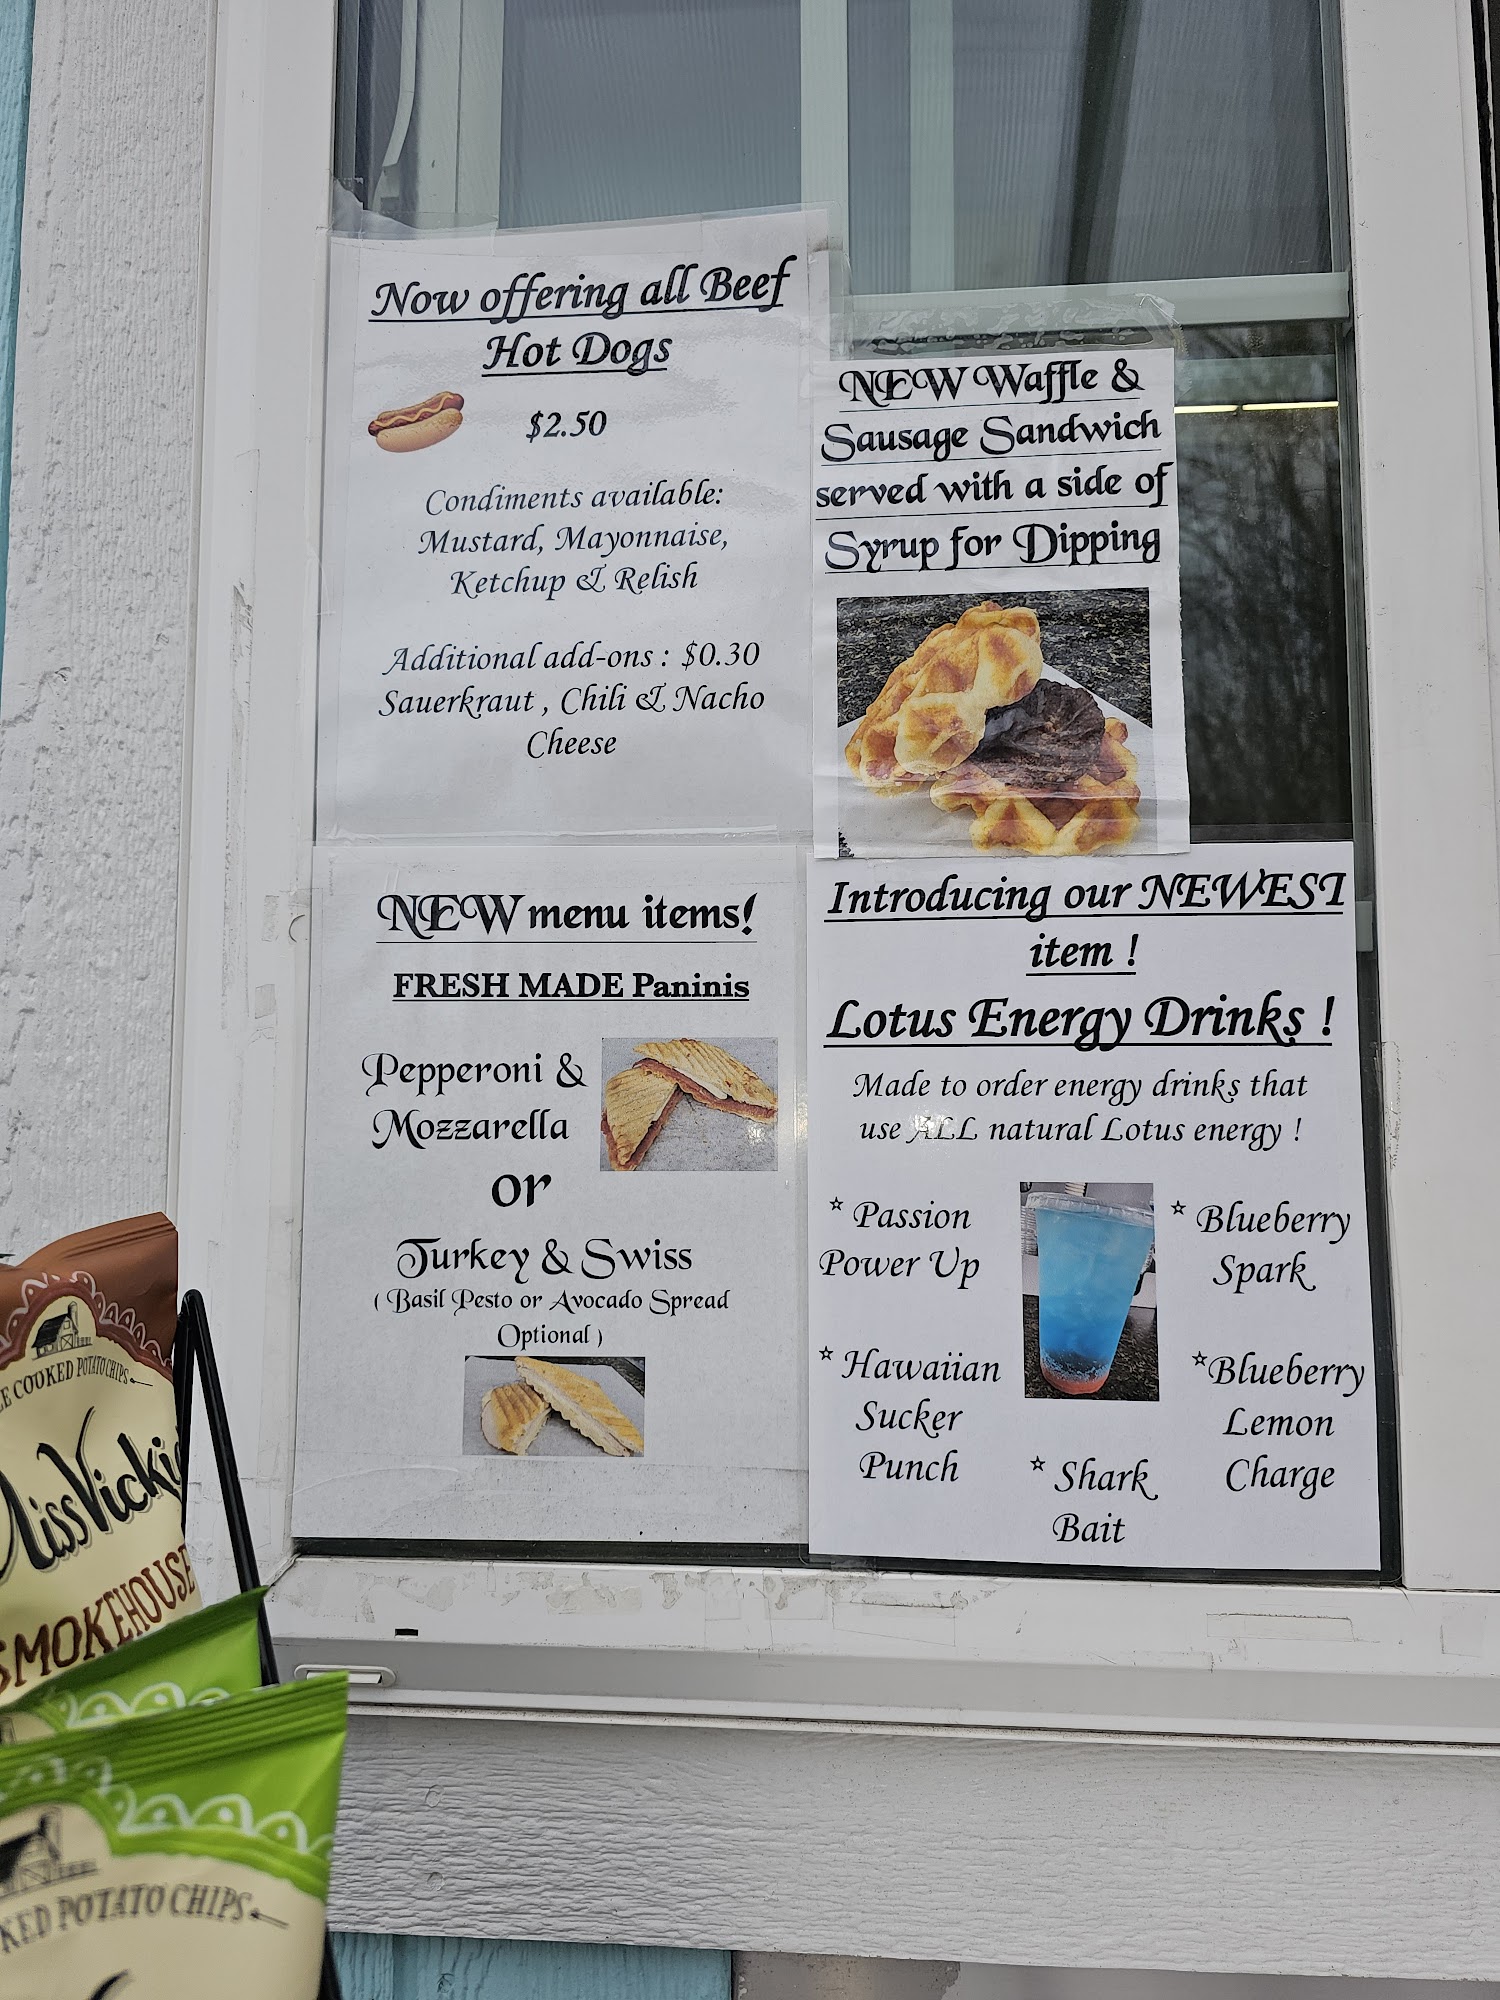 Now offering all Beef
Hot Dogs
$2.50
Condiments available:
Mustard, Mayonnaise,
Ketchup & Relish
Additional add-ons : $0.30
Sauerkraut , Chili & Nacho
Cheese
NEW Waffle &
Sausage Sandwich
served with a side of
Syrup for Dipping
NEW menu items!
FRESH MADE Paninis
Pepperoni &
Mozzarella
or
Turkey & Swiss
( Basil Pesto or Avocado Spread
Optional )
Introducing our NEWEST
item !
Lotus Energy Drinks !
Made to order energy drinks that
use ALL natural Lotus energy !
☆ Passion
Power Up
☆ Blueberry
Spark
☆ Hawaiian
Sucker
Punch
☆Blueberry
Lemon
Charge
☆ Shark
Bait
COOKED POTATO CHIPS
Miss Vickie
SMOKEHOUSE
POTATO CHIPS